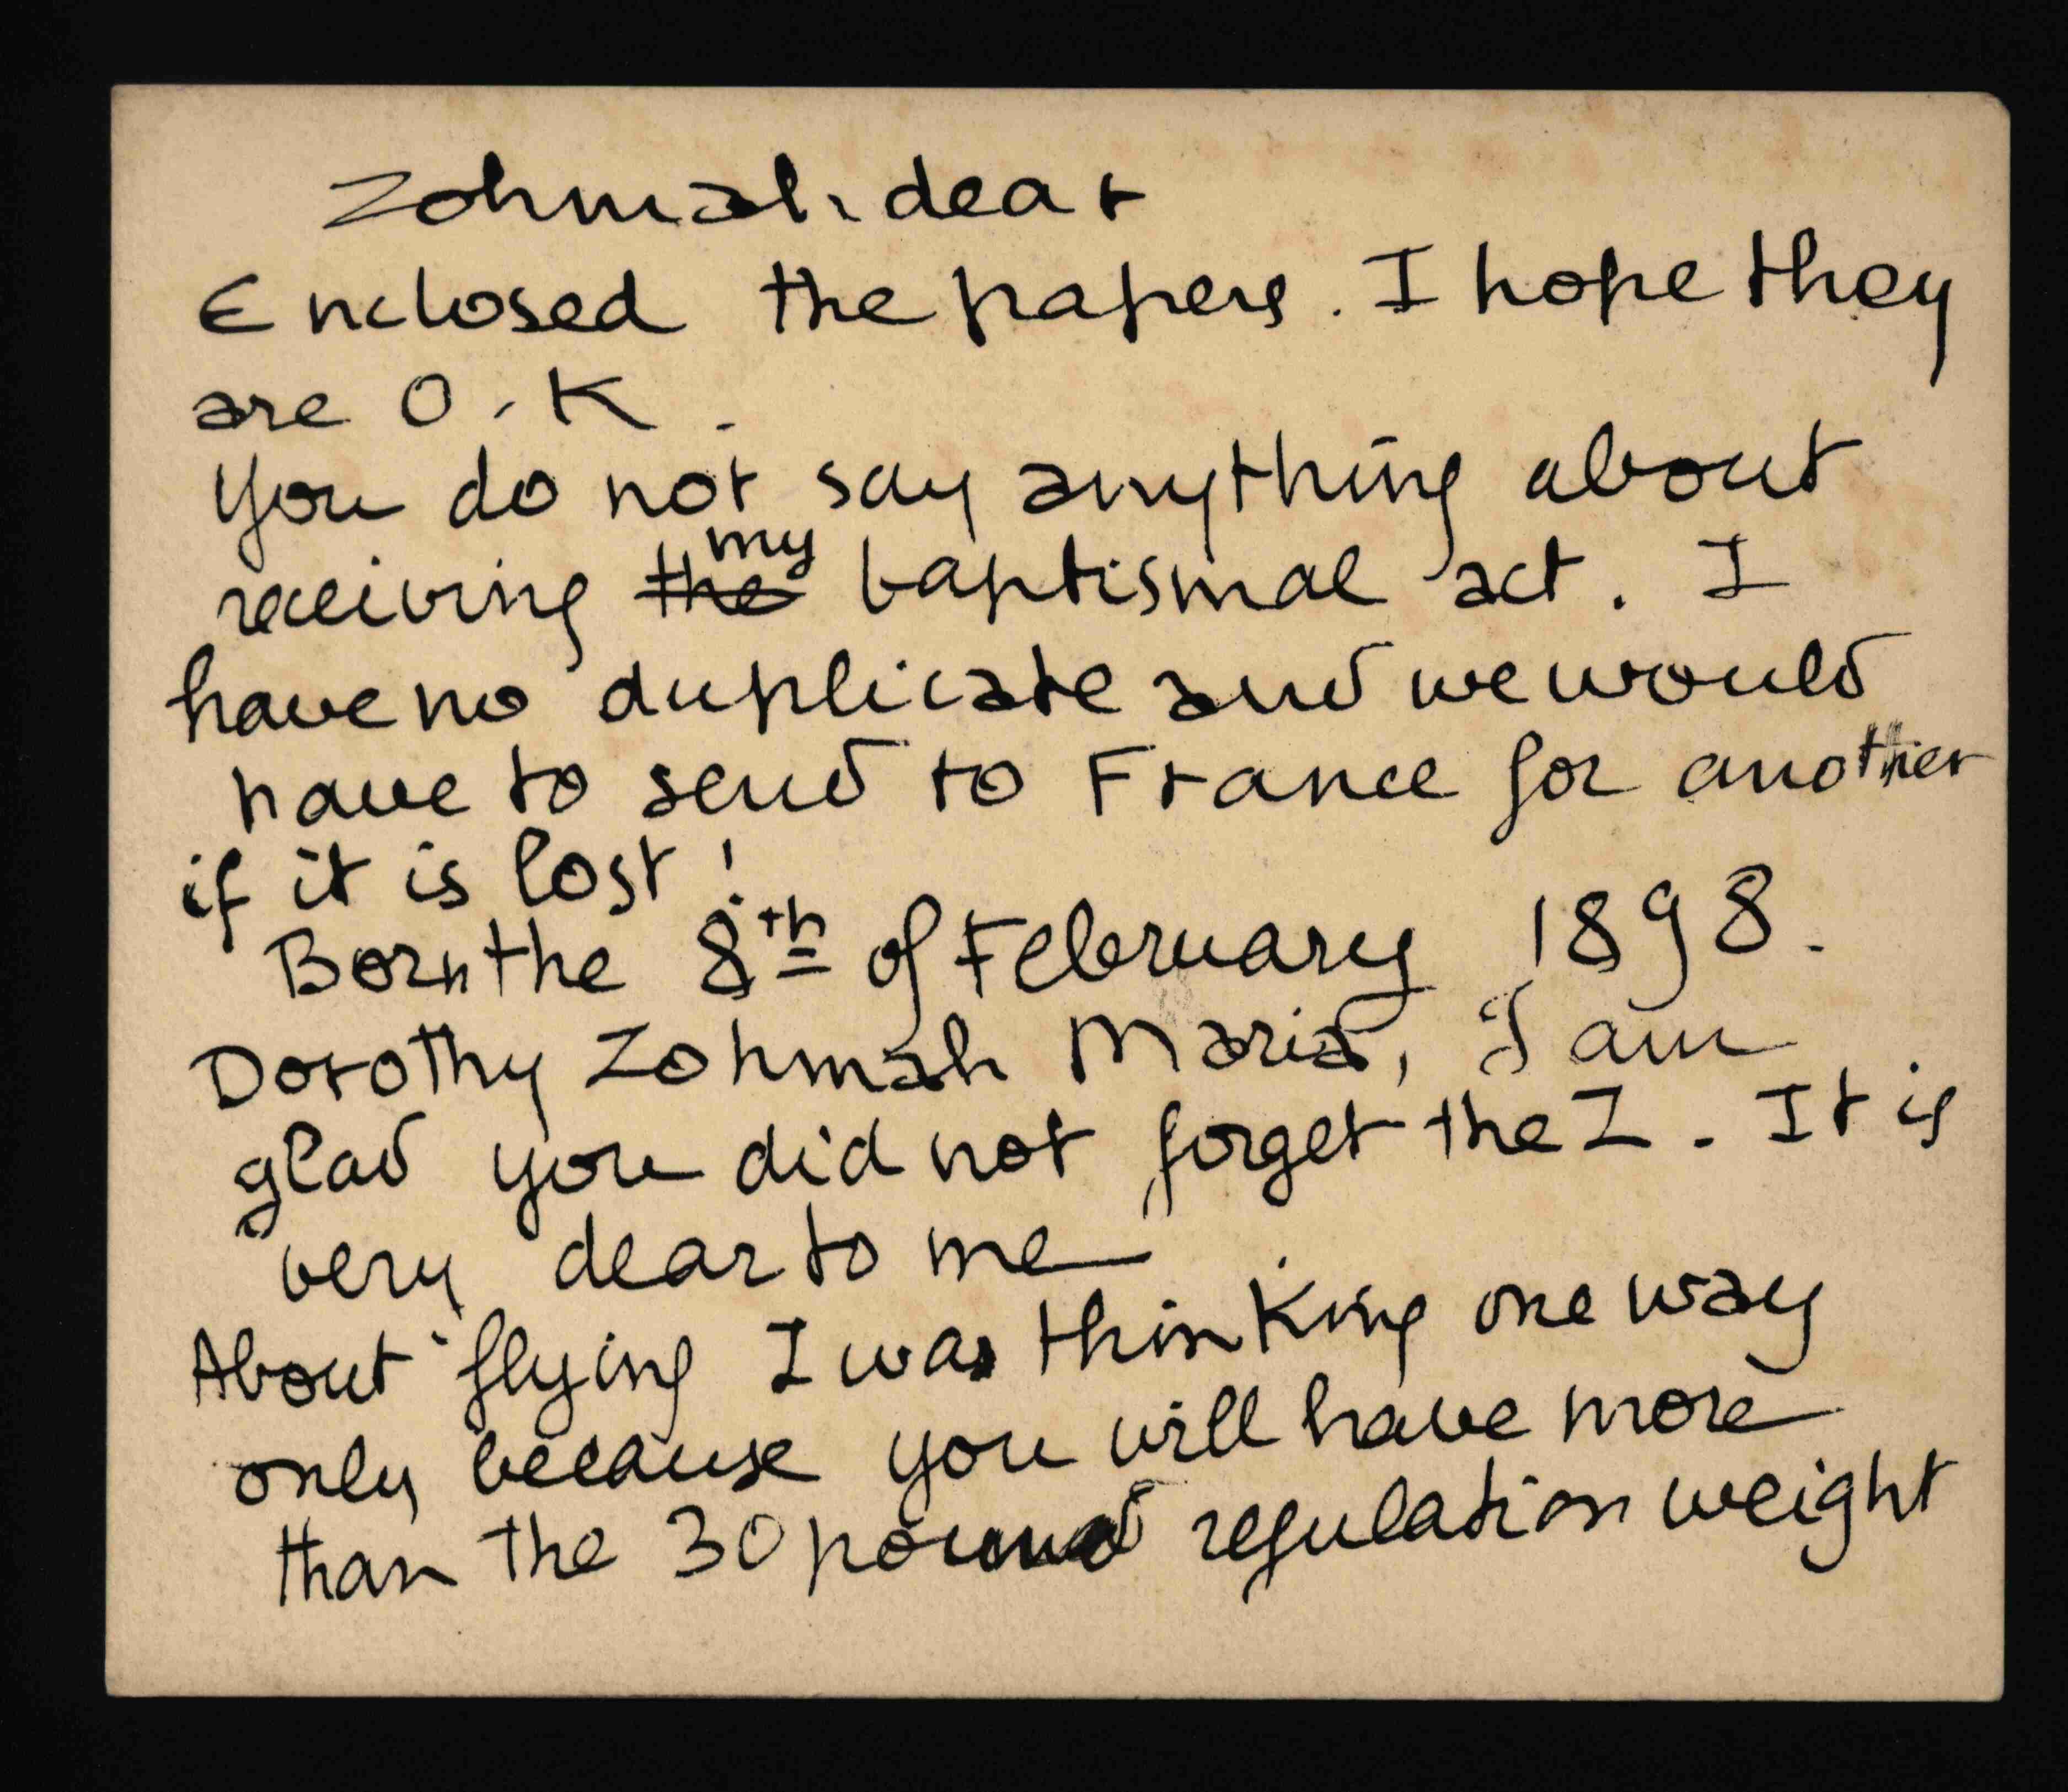 Zohmah dear
Enclosed the papers. I hope they
are O.K.
You do not say anything about
receiving the my baptismal act. I
have no duplicate and we would
have to send to France for another
if it is lost!
Born the 8th of February 1898.
Dorothy Zohmah Maria, I am
glad you did not forget the Z. It is
very dear to me
About flying I was thinking one way
only because you will have more
than the 30 pound regulation weight